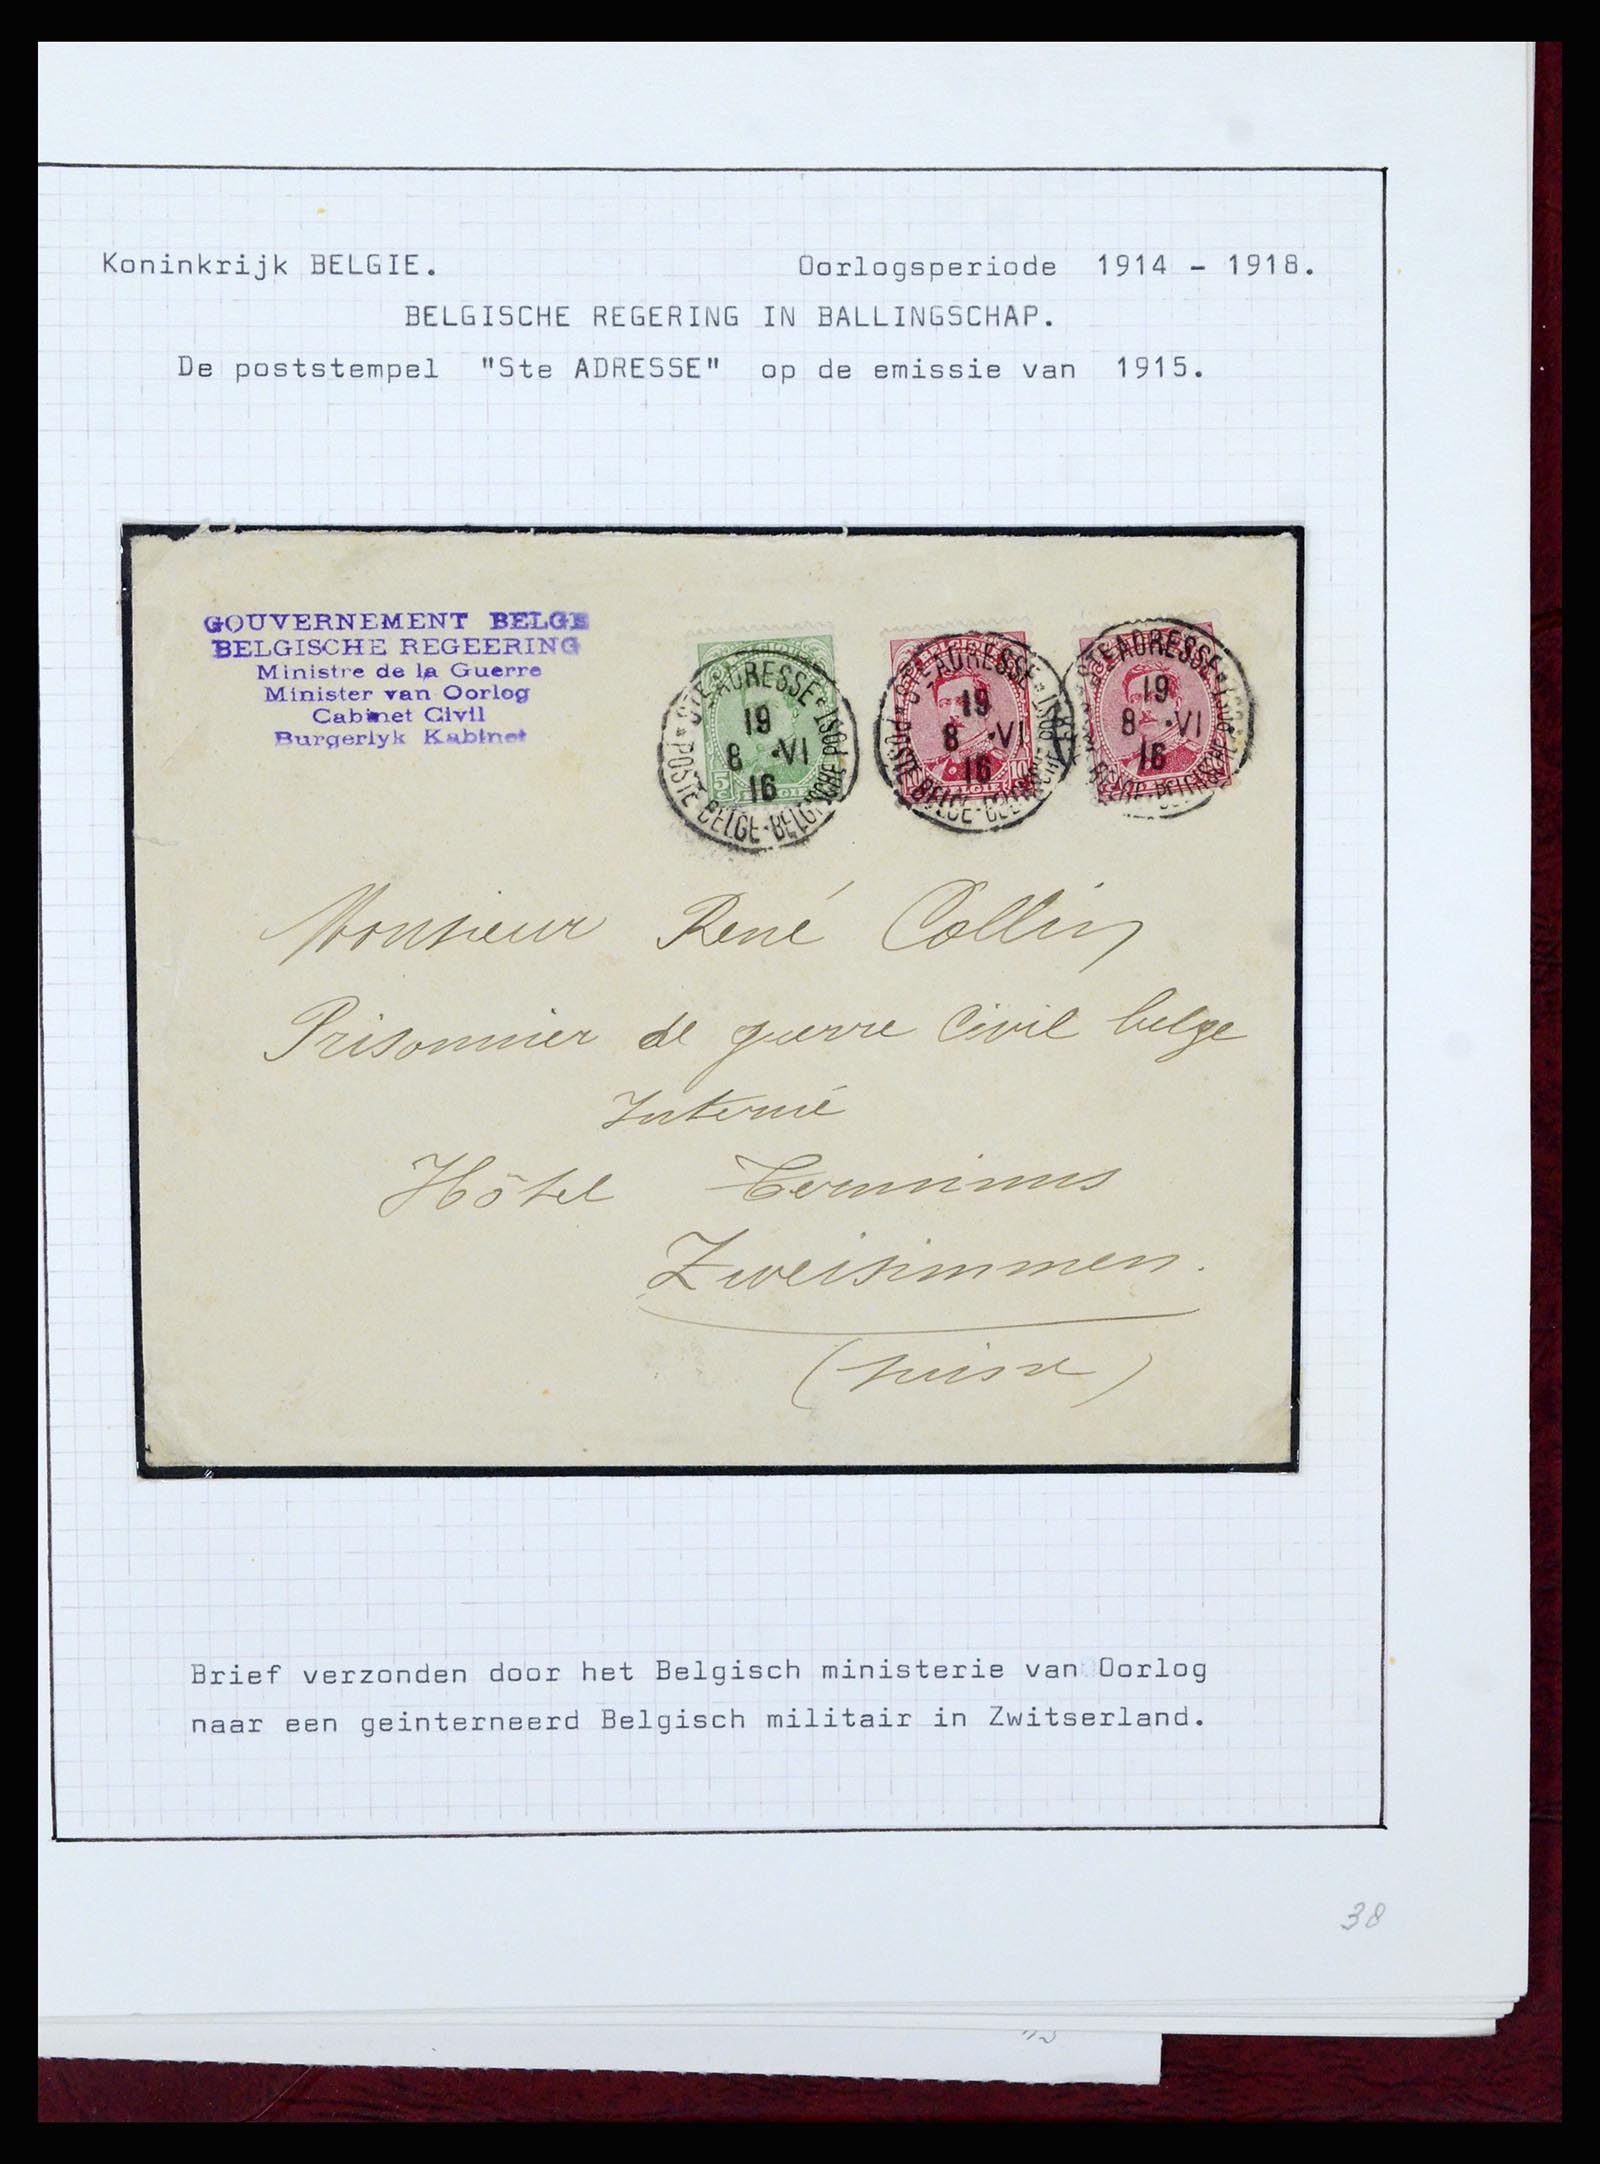 Koninkrijk BELGIE. Oorlogsperiode 1914 - 1918.
BELGISCHE REGERING IN BALLINGSCHAP.
De poststempel "Ste ADRESSE" op de emissie van 1915.
GOUVERNEMENT BELGE
BELGISCHE REGEERING
Ministre de la Guerre
Minister van Oorlog
Cabinet Civil
Burgerlyk Kabinet
STE ADRESSE
POSTE BELGE-BELGISCHE POST
19
8 -VI
16
5c
STE ADRESSE
POSTE BELGE
19
8 -VI
16
10
STE ADRESSE
19
8 -VI
16
Monsieur René Collin
Prisonnier de guerre Civil belge
Interné
Hôtel Terminus
Zweisimmen.
(Suisse)
Brief verzonden door het Belgisch ministerie van Oorlog
naar een geinterneerd Belgisch militair in Zwitserland.
38